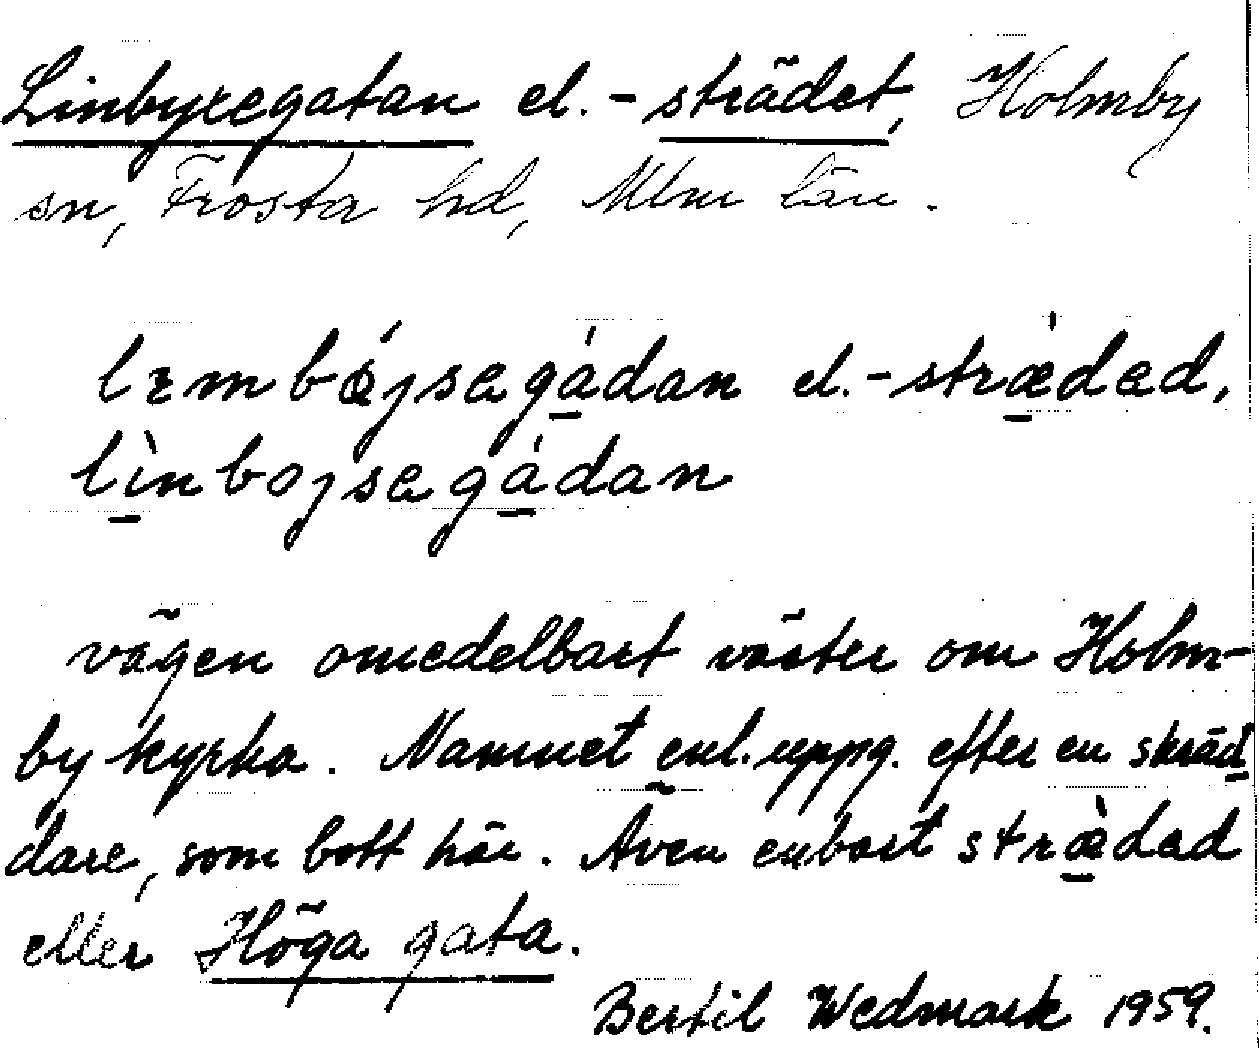 Linbyxegatan el. -strädet, Holmby
sn, Frosta hd, Mlm län.
lɪmbǿjsegɑ̀dan el. -strædad,
lìnbojsegàdan
vägen omedelbart väster om Holm-
by kyrka. Namnet enl. uppg. efter en skräd-
dare, som bott här. Även enbart strædad
eller Höga gata.
Bertil Wedmark 1959.